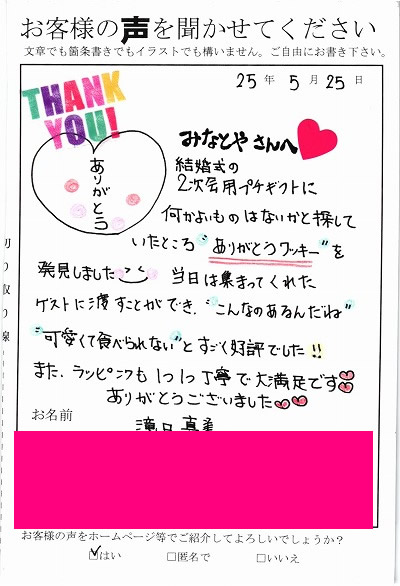 お客様の声を聞かせてください
文章でも箇条書きでもイラストでも構いません。ご自由にお書き下さい。
25年 5月25日
THANK
YOU!
みなとや さんへ
ありがとう
結婚式の
2次会用プチギフトに
何かよいものはないかと探して
いたところ"ありがとうクッキー"を
発見しました
当日は集まってくれた
ゲストに渡すことができ、"こんなのあるんだね"
"可愛くて食べられない"とすごく好評でした!!
また、ラッピングも1つ1つ丁寧で大満足です
ありがとうございました
切り取り線
お名前
お客様の声をホームページ等でご紹介してよろしいでしょうか?
☑はい □匿名で □いいえ